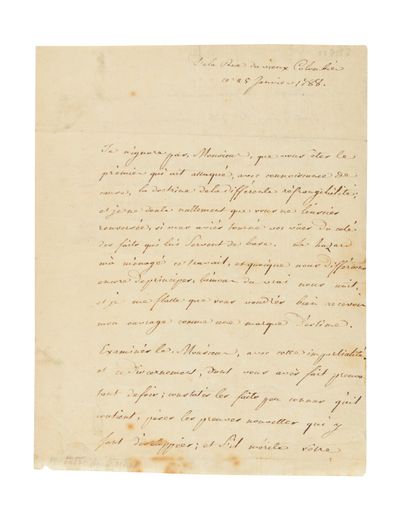 De la Rue du vieux Colombier
ce 25 Janvier 1788.
Je n'ignore pas, Monsieur, que vous êtes le
premier qui ait attaqué, avec connoissance de
cause, la doctrine de la différente réfrangibilité;
et je ne doute nullement que vous ne l'eussiés
renversée, si vous aviés tourné vos vües du coté
des faits qui lui servent de base. Le hazard
m'a ménagé ce travail, et quoique nous différions
encore de principes, l'amour du vrai nous unit,
et je me flatte que vous voudrés bien recevoir
mon ouvrage comme une marque d'estime.
Examinés le, Monsieur, avec cette impartialité
et ce discernement, dont vous avés fait preuve
tant de fois; constatés les faits qu'il
contient, pesés les preuves nouvelles qui y
sont développées; et s'il mérite vôtre